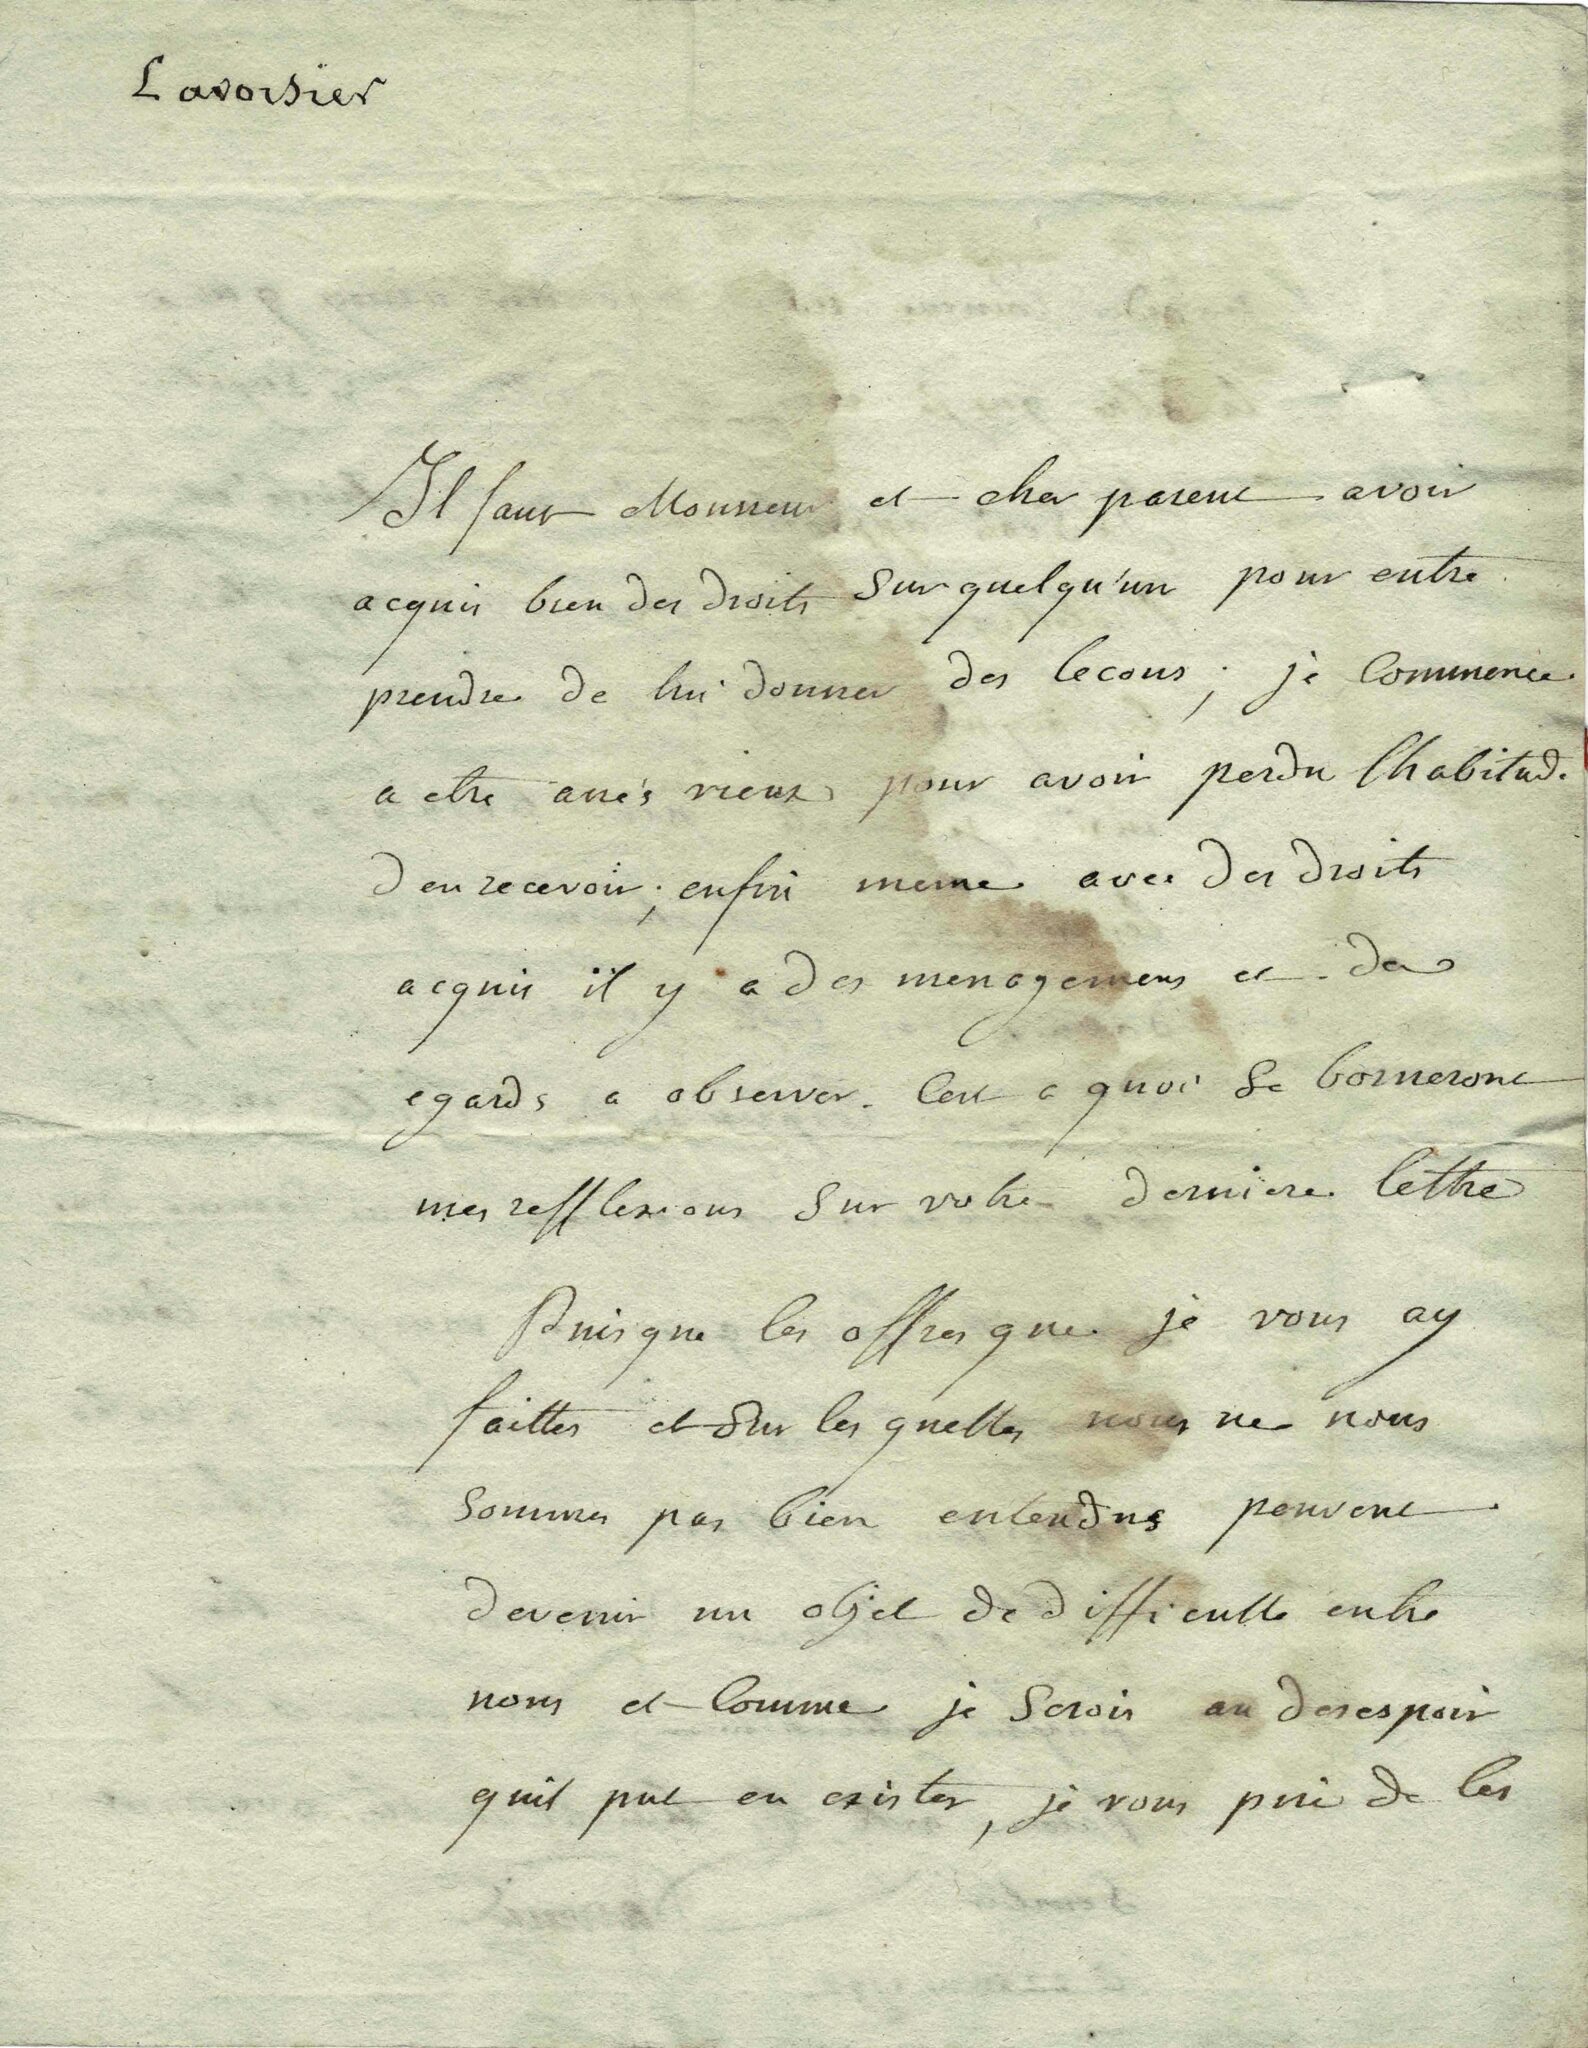 Lavoisier
Il faut Monsieur et cher parent avoir
acquis bien des droits sur quelqu'un pour entre
prendre de lui donner des lecons ; je commence
a etre assés vieux pour avoir perdu lhabitude
d en recevoir ; enfin meme avec des droits
acquis il y a des menagemens et des
egards a observer. Cest a quoi se borneront
mes refflexions sur votre derniere lettre
Puisque les offres que je vous ay
faittes et sur les quelles nous ne nous
sommes pas bien entendus peuvent
devenir un objet de difficulte entre
nous et comme je serois au desespoir
quil put en exister, je vous prie de les